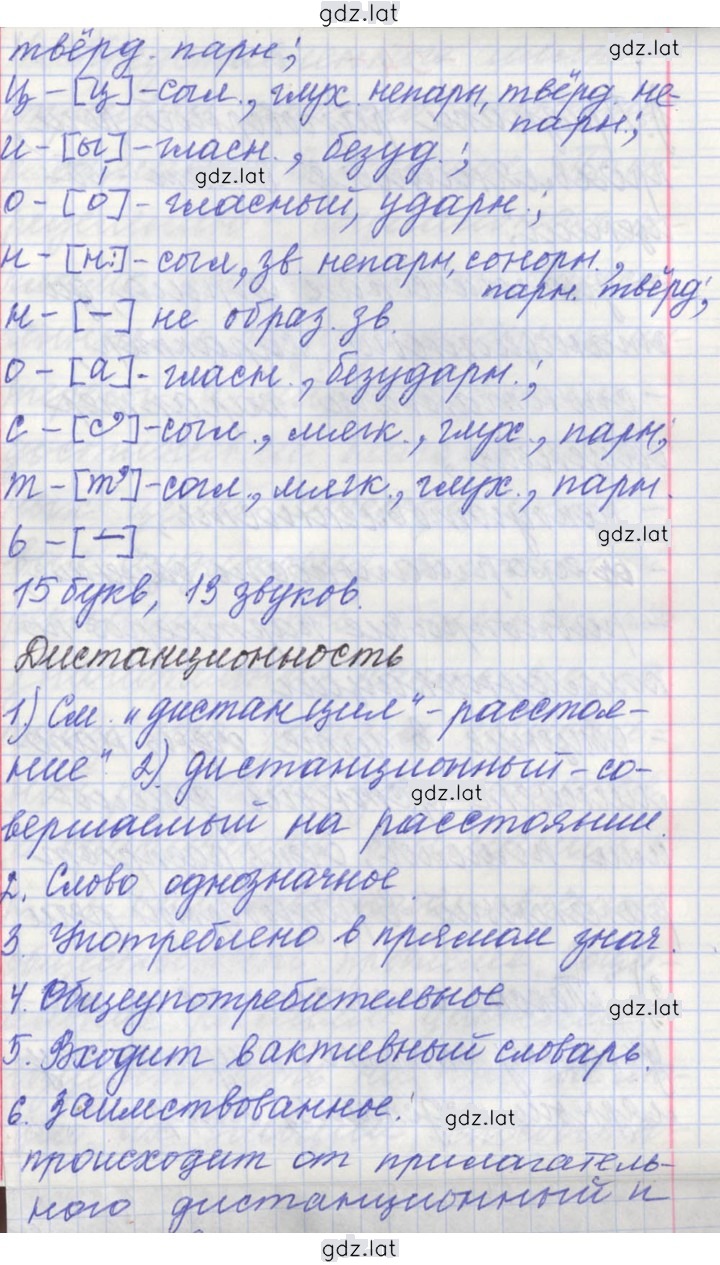 gdz.lat
твёрд. парн;
gdz.lat
ц – [ц] – согл., глух. непарн, твёрд. не-
парн.;
и – [ы] – гласн., безуд.;
gdz.lat
о – [о́] – гласный, ударн.;
н – [н:] – согл, зв. непарн, сонорн.,
парн. твёрд;
н – [–] не образ. зв.
о – [а] – гласн., безударн.;
с – [с'] – согл., мягк., глух., парн;
т – [т'] – согл., мягк., глух., парн.
gdz.lat
ь – [–]
15 букв, 13 звуков.
Дистанционность
1) См. „дистанция“ – расстоя-
ние“ 2) дистанционный – со-
gdz.lat
вершаемый на расстоянии.
2. Слово однозначное.
3. Употреблено в прямом знач.
4. Общеупотребительное
gdz.lat
5. Входит в активный словарь.
6. Заимствованное.
gdz.lat
происходит от прилагатель-
ного дистанционный и
gdz.lat